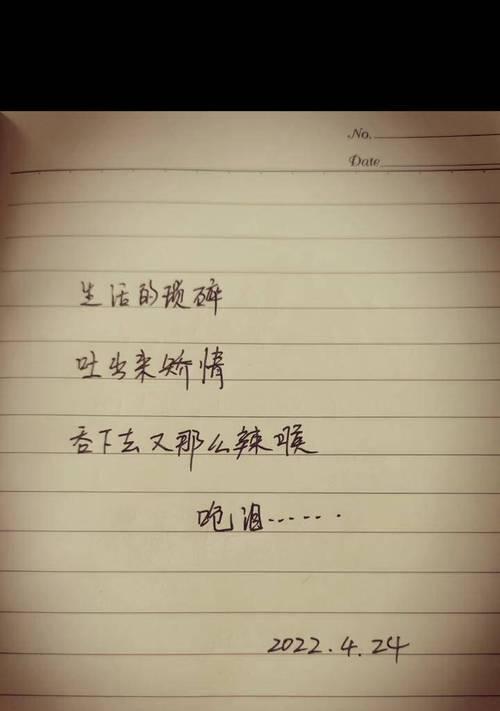 No.
Date
生活的琐碎
吐出来矫情
吞下去又那么辣喉
呛泪......
2022.4.24